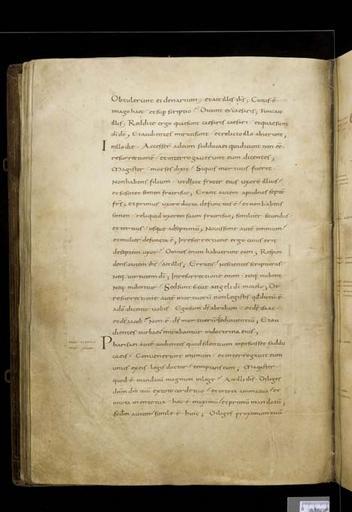 Obtulerunt ei denarium, et ait illis dns, Cuius ē
imago haec et sup scriptio, Dicunt ei caesaris, Tunc ait
illis, Reddite ergo quae sunt caesaris caesari, et quae sunt
di dō, Et audientes mirati sunt, et relicto illo abierunt,
In illo die, Accesser ad eum sadducaei qui dicunt non eē
resurrectionē, et interrogauerunt eum dicentes,
Magister, moses dixit, Si quis mortuus fuerit
Non habens filium, ut ducat frater eius uxorē illius,
et suscitet semen fratri suo, Erant autem apud nos septē
frs, et primus uxore ducta defunctus ē, et non habens
semen, reliquid uxorem suam fratri suo, similiter secundus
et tertius, usque ad septimū, Nouissime autē omnium
et mulier defuncta ē, In resurrectione ergo cuius erit
de septem uxor, Omnes enim habuerunt eam, Respon
dens autem ihs, ait illis, Erratis, nescientes scripturas
neq, uirtutem di, In resurrectione enim, neq, nubent
neq, nubentur, Sed sunt sicut angeli di in caelo, De
resurrectione autē mortuorū non legistis qd dictū ē
a dō dicente uobis, Ego sum ds abraham, et ds isaac,
et ds iacob, Non ē ds mortuorū sed uiuentiū, Et au
dientes turbae mirabantur in doctrina eius,
Pharisaei autē audientes quod silentium imposuisset saddu
caeis, Conuenerunt in unum, et interrogauit eum
unus ex eis legis doctor, temptans eum, Magister
quod ē mandatū magnum in lege, Ait illi ihs, Diliges
dnm dm tuū ex toto corde tuo, et in tota anima tua, et
in tota mente tua, hoc ē maximū, et primū mandatū,
Scdm autem simile ē huic, Diliges proximum tuū